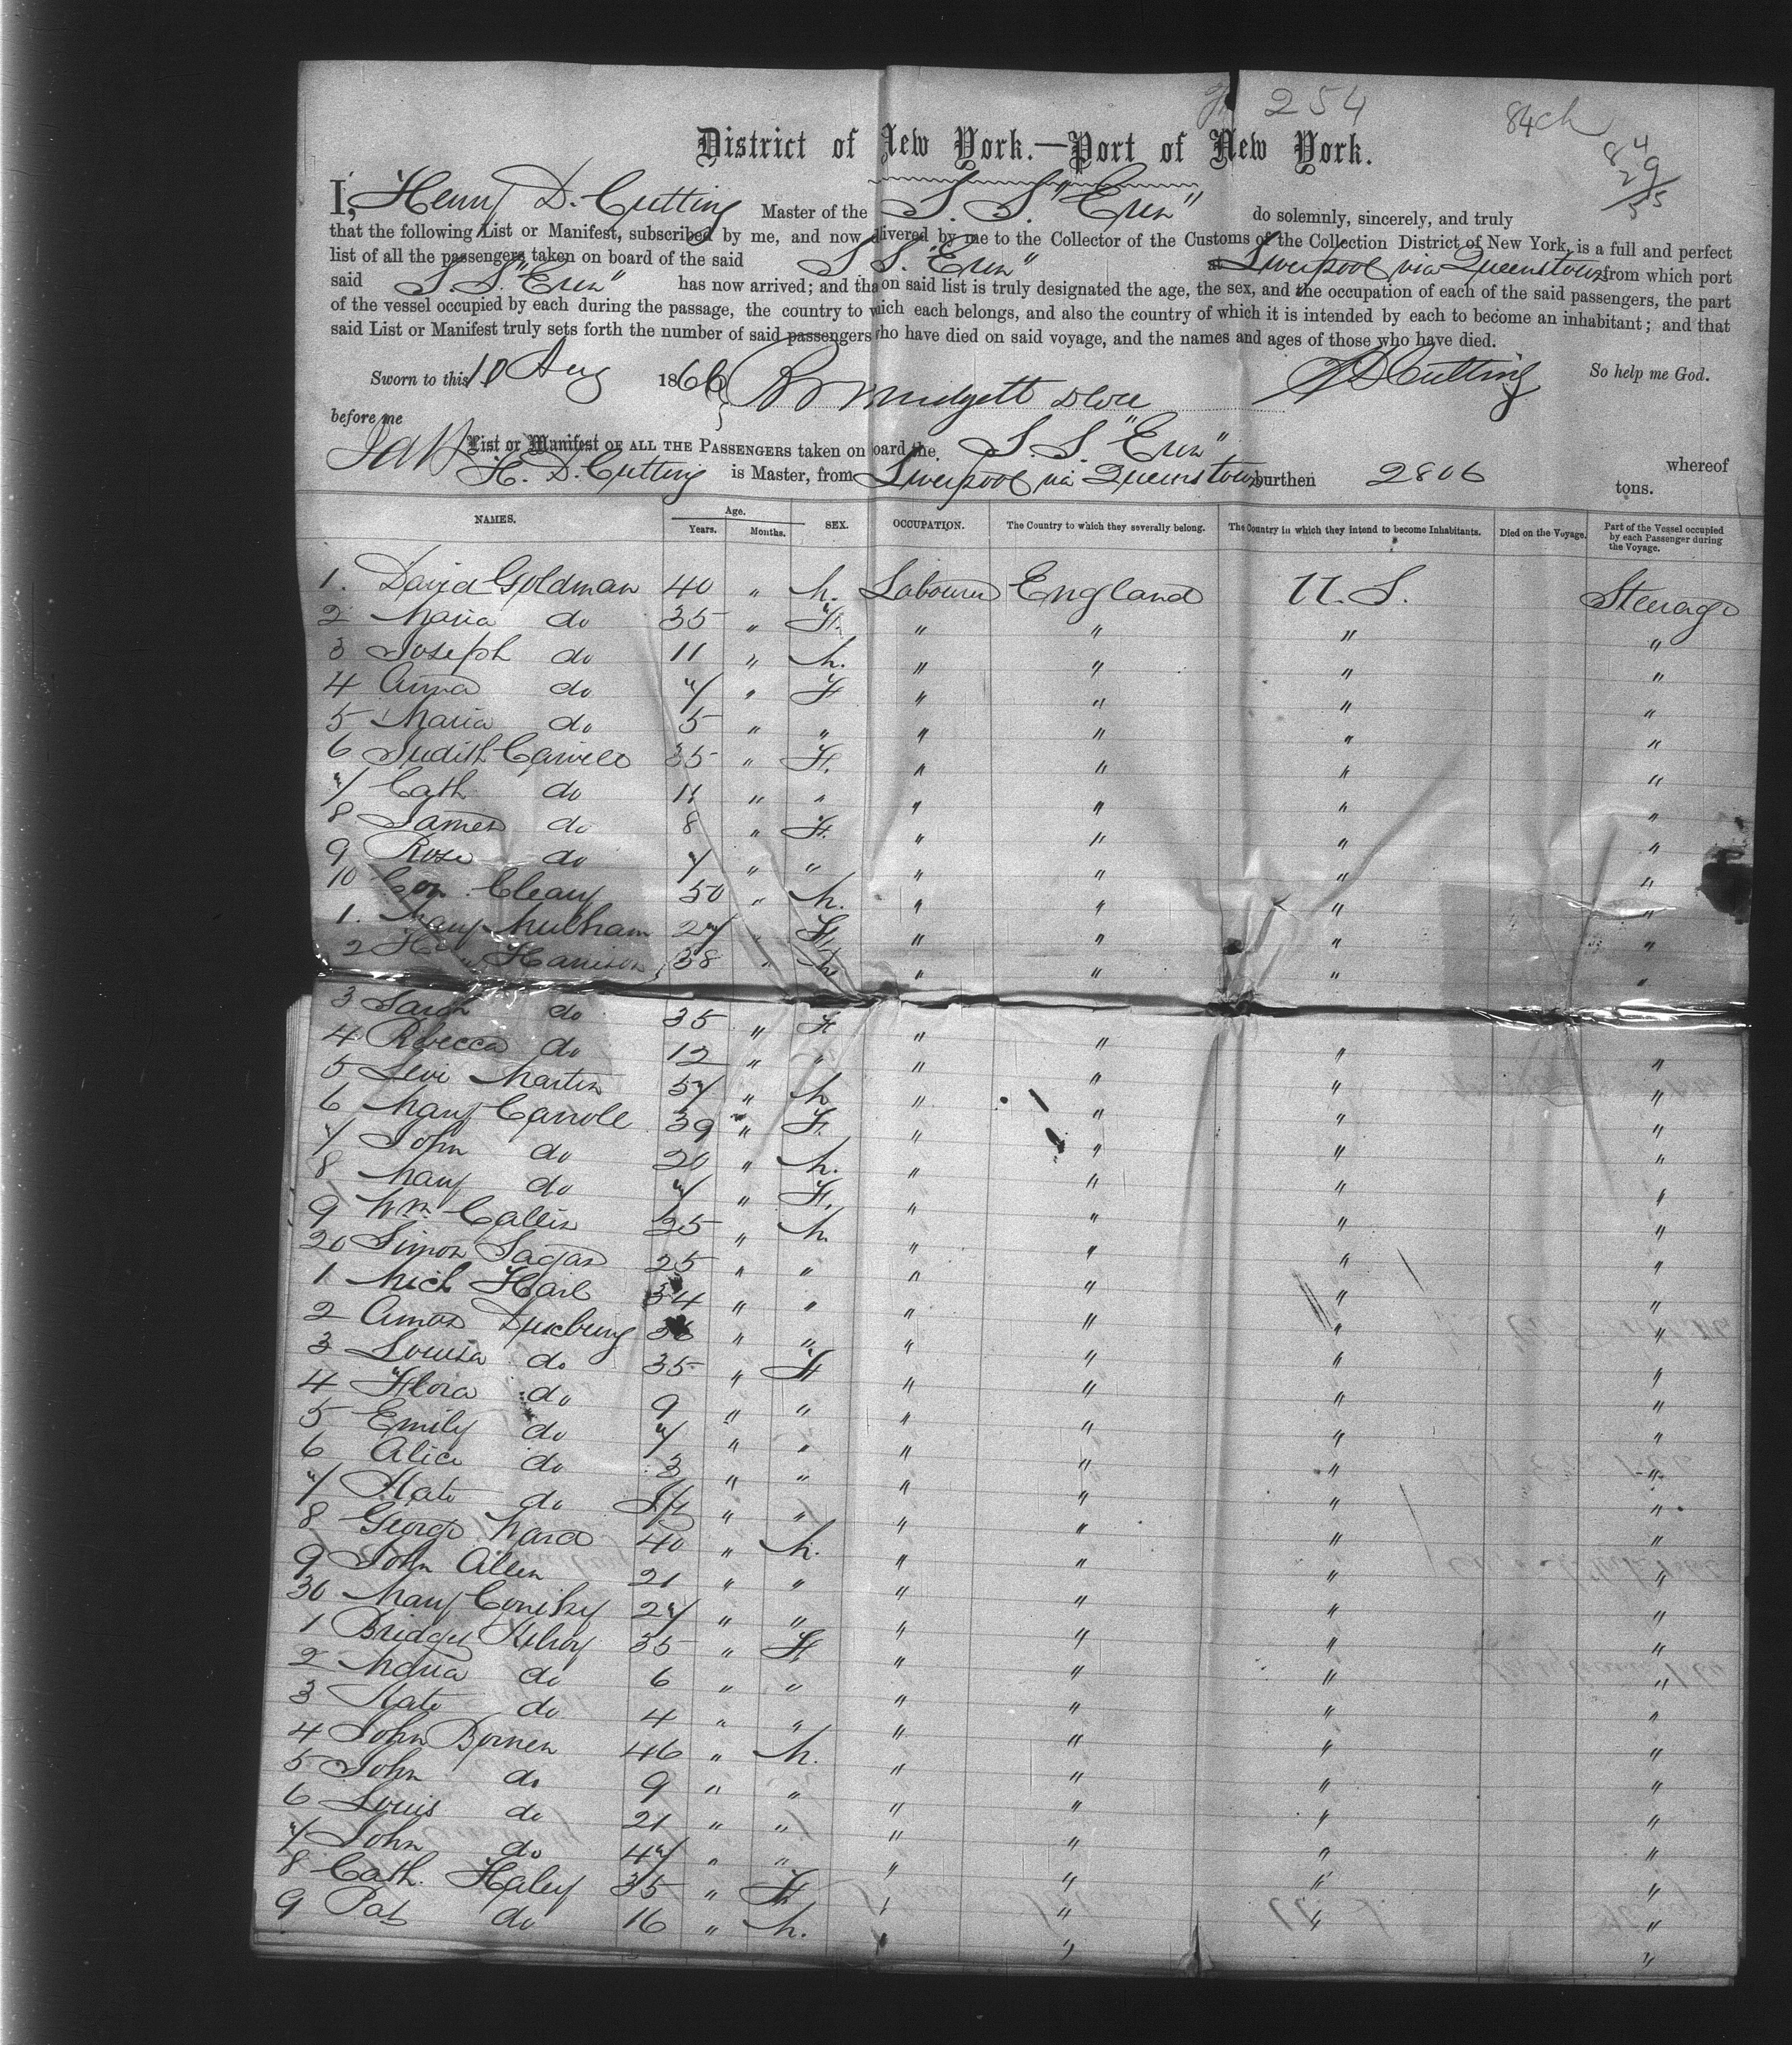 254
84 ch
District of New York.—Port of New York.
I, Henry D. Cutting Master of the S. S. "Erin" do solemnly, sincerely, and truly
that the following List or Manifest, subscribed by me, and now delivered by me to the Collector of the Customs of the Collection District of New York, is a full and perfect
list of all the passengers taken on board of the said S. S. "Erin" at Liverpool via Queenstown from which port
said S. S. "Erin" has now arrived; and that on said list is truly designated the age, the sex, and the occupation of each of the said passengers, the part
of the vessel occupied by each during the passage, the country to which each belongs, and also the country of which it is intended by each to become an inhabitant; and that
said List or Manifest truly sets forth the number of said passengers who have died on said voyage, and the names and ages of those who have died.
Sworn to this 10 Aug 1866 HD Cutting So help me God.
before me
List or Manifest OF ALL THE PASSENGERS taken on board the S. S. "Erin" whereof
H. D. Cutting is Master, from Liverpool via Queenstown burthen 2806 tons.
NAMES. Age. Years. Months. SEX. OCCUPATION. The Country to which they severally belong. The Country in which they intend to become Inhabitants. Died on the Voyage. Part of the Vessel occupied by each Passenger during the Voyage.
1. David Goldman 40 " M. Labourer England U. S. Steerage
2 Maria do 35 " F. " " " "
3 Joseph do 11 " M. " " " "
4 Anna do 7 " F " " " "
5 Maria do 5 " " " " " "
6 Judith 35 " F. " " " "
7 Cath do 11 " " " " " "
8 James do 8 " F. " " " "
9 Rose do 7 " " " " " "
10 Cleary 50 " M. " " " "
1. Mary 27 " F. " " " "
2 Harrison 38 " M " " " "
3 Sarah do 35 " F " " " "
4 Rebecca do 12 " " " " " "
5 Levi Martin 57 " M " " " "
6 Mary Carroll 39 " F. " " " "
7 John do 20 " M. " " " "
8 Mary do 7 " F. " " " "
9 Wm Callis 25 " M. " " " "
20 Simon 25 " " " " " "
1 Mich Hail 34 " " " " " "
2 Amos Duxbury 36 " " " " " "
3 Louisa do 35 " F " " " "
4 Flora do 9 " " " " " "
5 Emily do 7 " " " " " "
6 Alice do 3 " " " " " "
7 Kate do " " " " " "
8 George Ward 40 " M. " " " "
9 John Allen 21 " " " " " "
30 Mary 27 " " " " " "
1 Bridget Kilroy 35 " F " " " "
2 Maria do 6 " " " " " "
3 Kate do 4 " " " " " "
4 John 46 " M. " " " "
5 John do 9 " " " " " "
6 Louis do 21 " " " " " "
7 John do 47 " " " " " "
8 Cath. Haley 35 " F. " " " "
9 Pat do 16 " M. " " " "